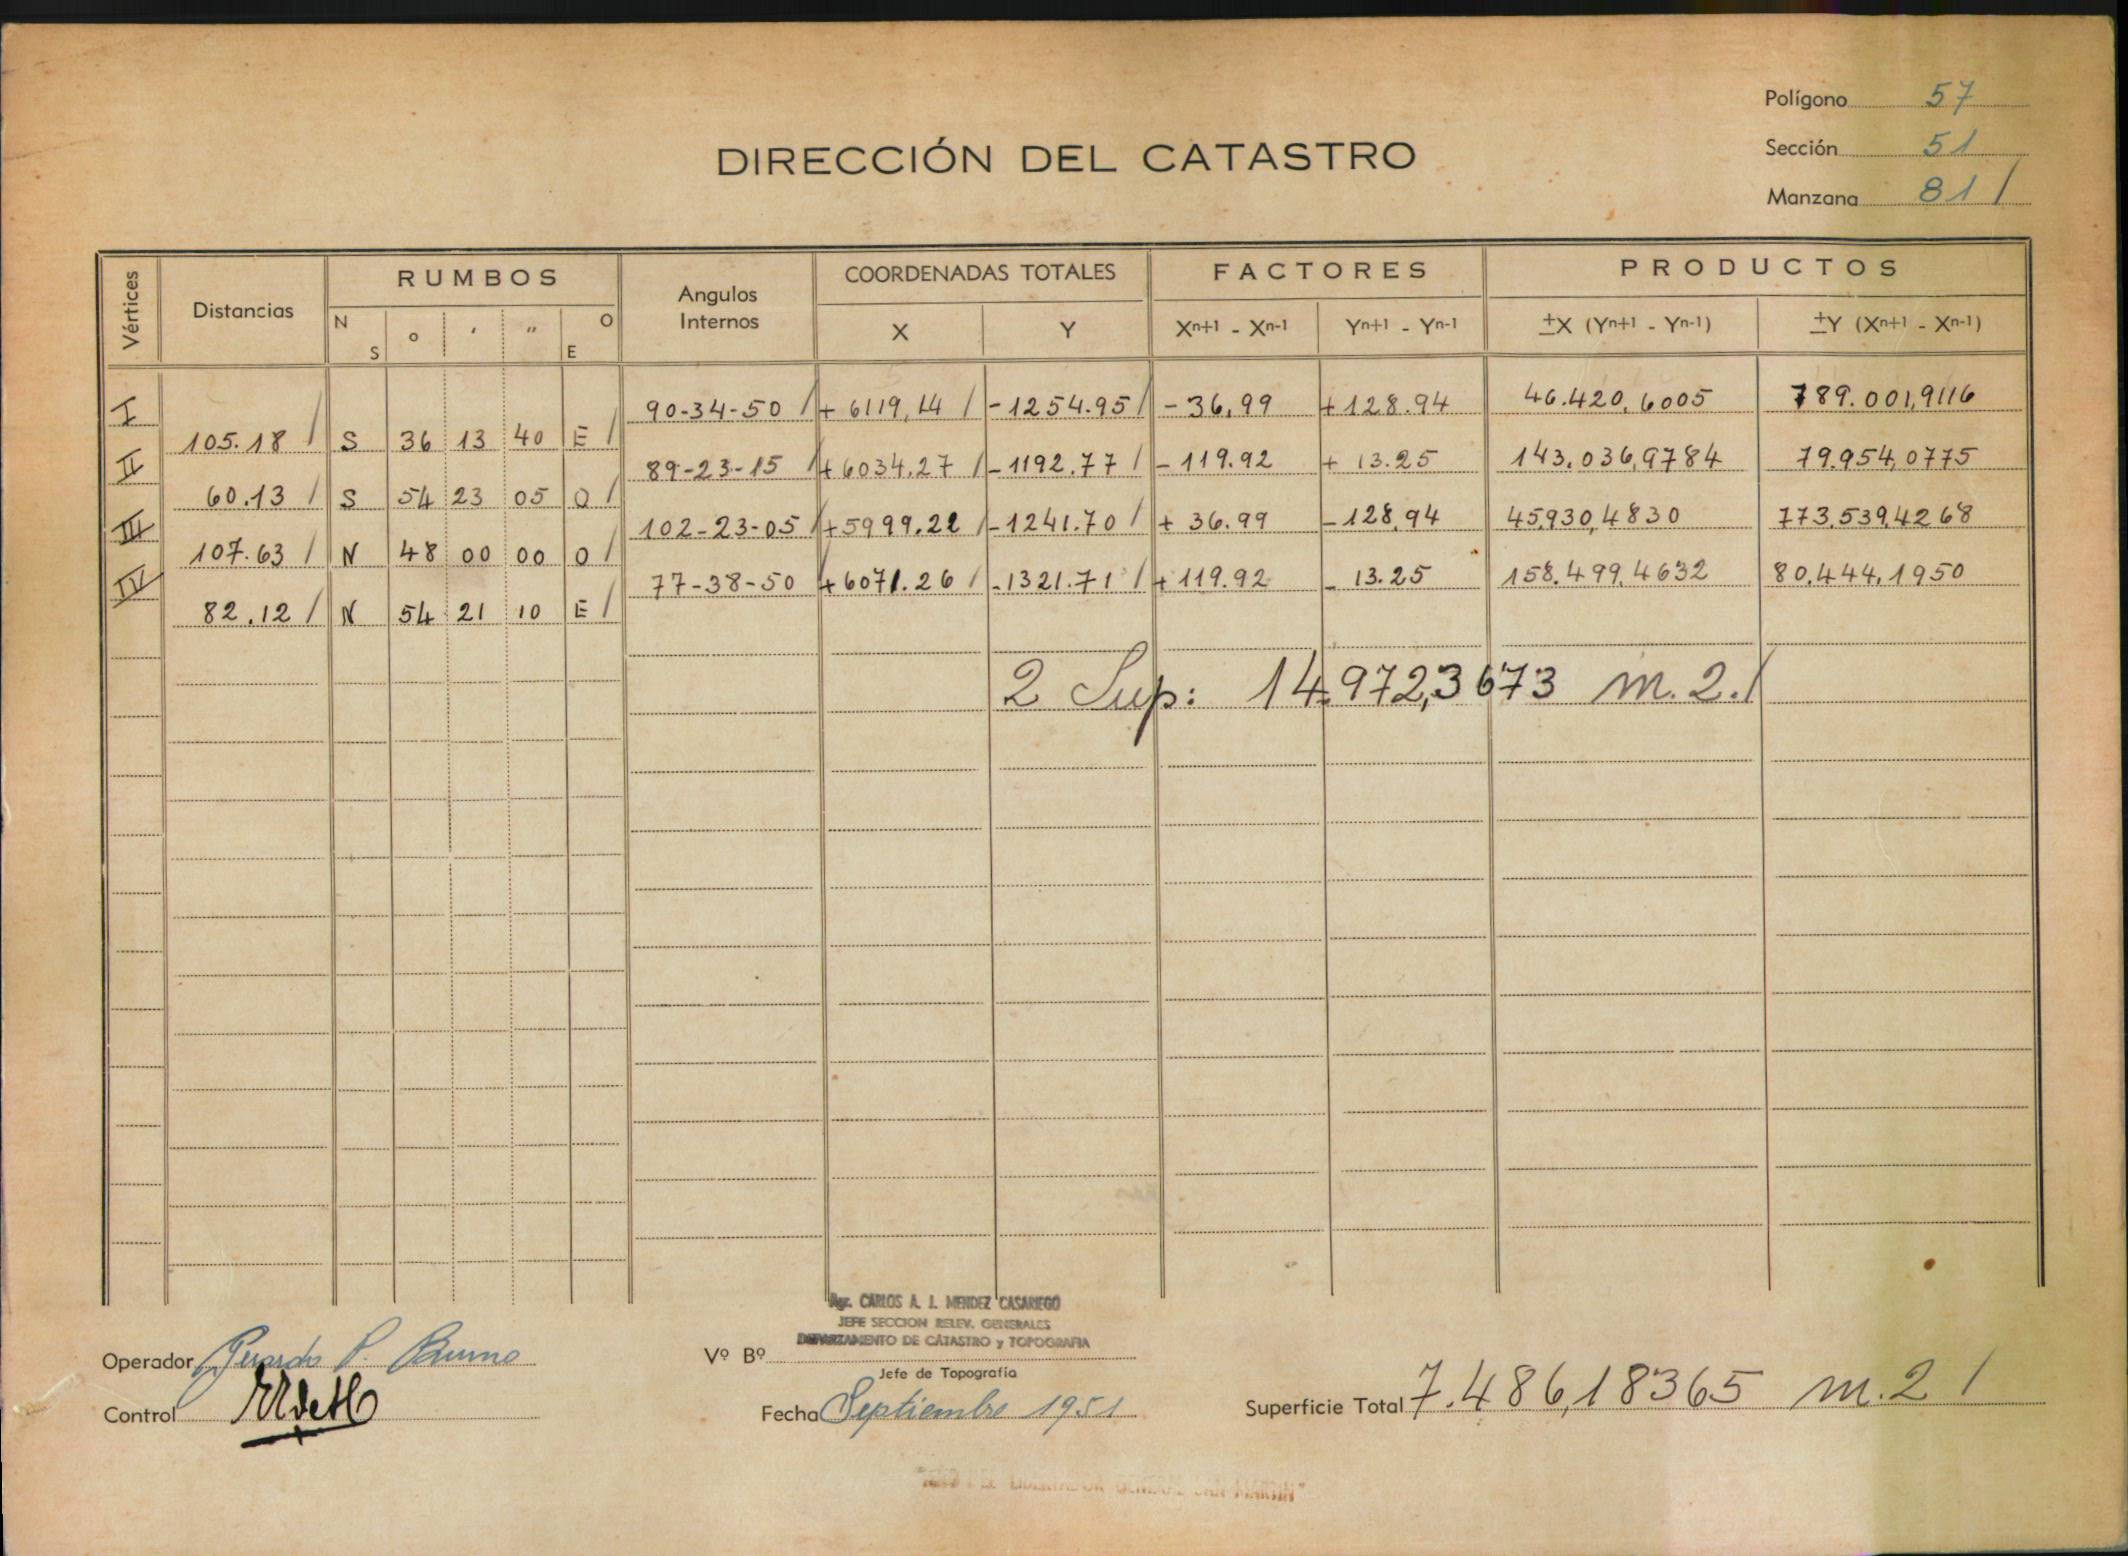 Polígono 57
Sección 51
Manzana 81 /
DIRECCIÓN DEL CATASTRO
Vértices Distancias RUMBOS Angulos Internos COORDENADAS TOTALES FACTORES PRODUCTOS
N S o ' " O E X Y Xn+1 - Xn-1 Yn+1 - Yn-1 ±X (Yn+1 - Yn-1) ±Y (Xn+1 - Xn-1)
I 90-34-50 / + 6119,14 / -1254.95 / - 36,99 +128.94 46.420,6005 789.001,9116
105.18 / S 36 13 40 E /
II 89-23-15 / +6034.27 / -1192.77 / - 119.92 + 13.25 143.036,9784 79.954,0775
60.13 / S 54 23 05 O /
III 102-23-05 / +5999.22 / -1241.70 / + 36.99 -128,94 45930,4830 773.539,4268
107.63 / N 48 00 00 O /
IV 77-38-50 +6071.26 / -1321.71 / +119.92 - 13.25 158.499,4632 80.444,1950
82.12 / N 54 21 10 E /
2 Sup: 14.972,3673 m.2. /
Agr. CARLOS A. J. MENDEZ CASARIEGO
JEFE SECCION RELEV. GENERALES
DEPARTAMENTO DE CATASTRO y TOPOGRAFIA
Operador Gerardo P. Bruno
Vº Bº
Jefe de Topografía
Control
Fecha Septiembre 1951
Superficie Total 7.486,18365 m.2 /